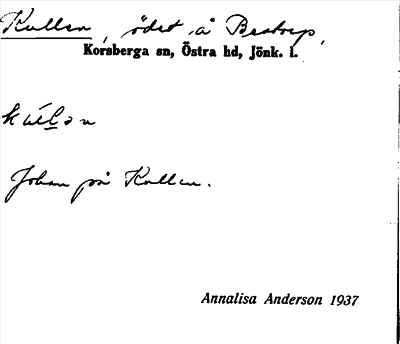 Kullen, ödet å Bestorp,
Korsberga sn, Östra hd, Jönk. l.
kúlən
Johan på Kullen.
Annalisa Anderson 1937